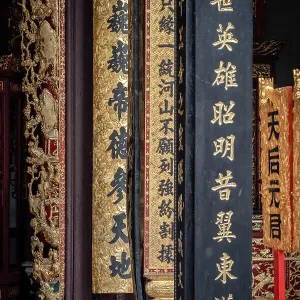 天后元君
世英雄昭明昔翼東
只緣一統河山不願列強紛割據
巍巍帝德參天地